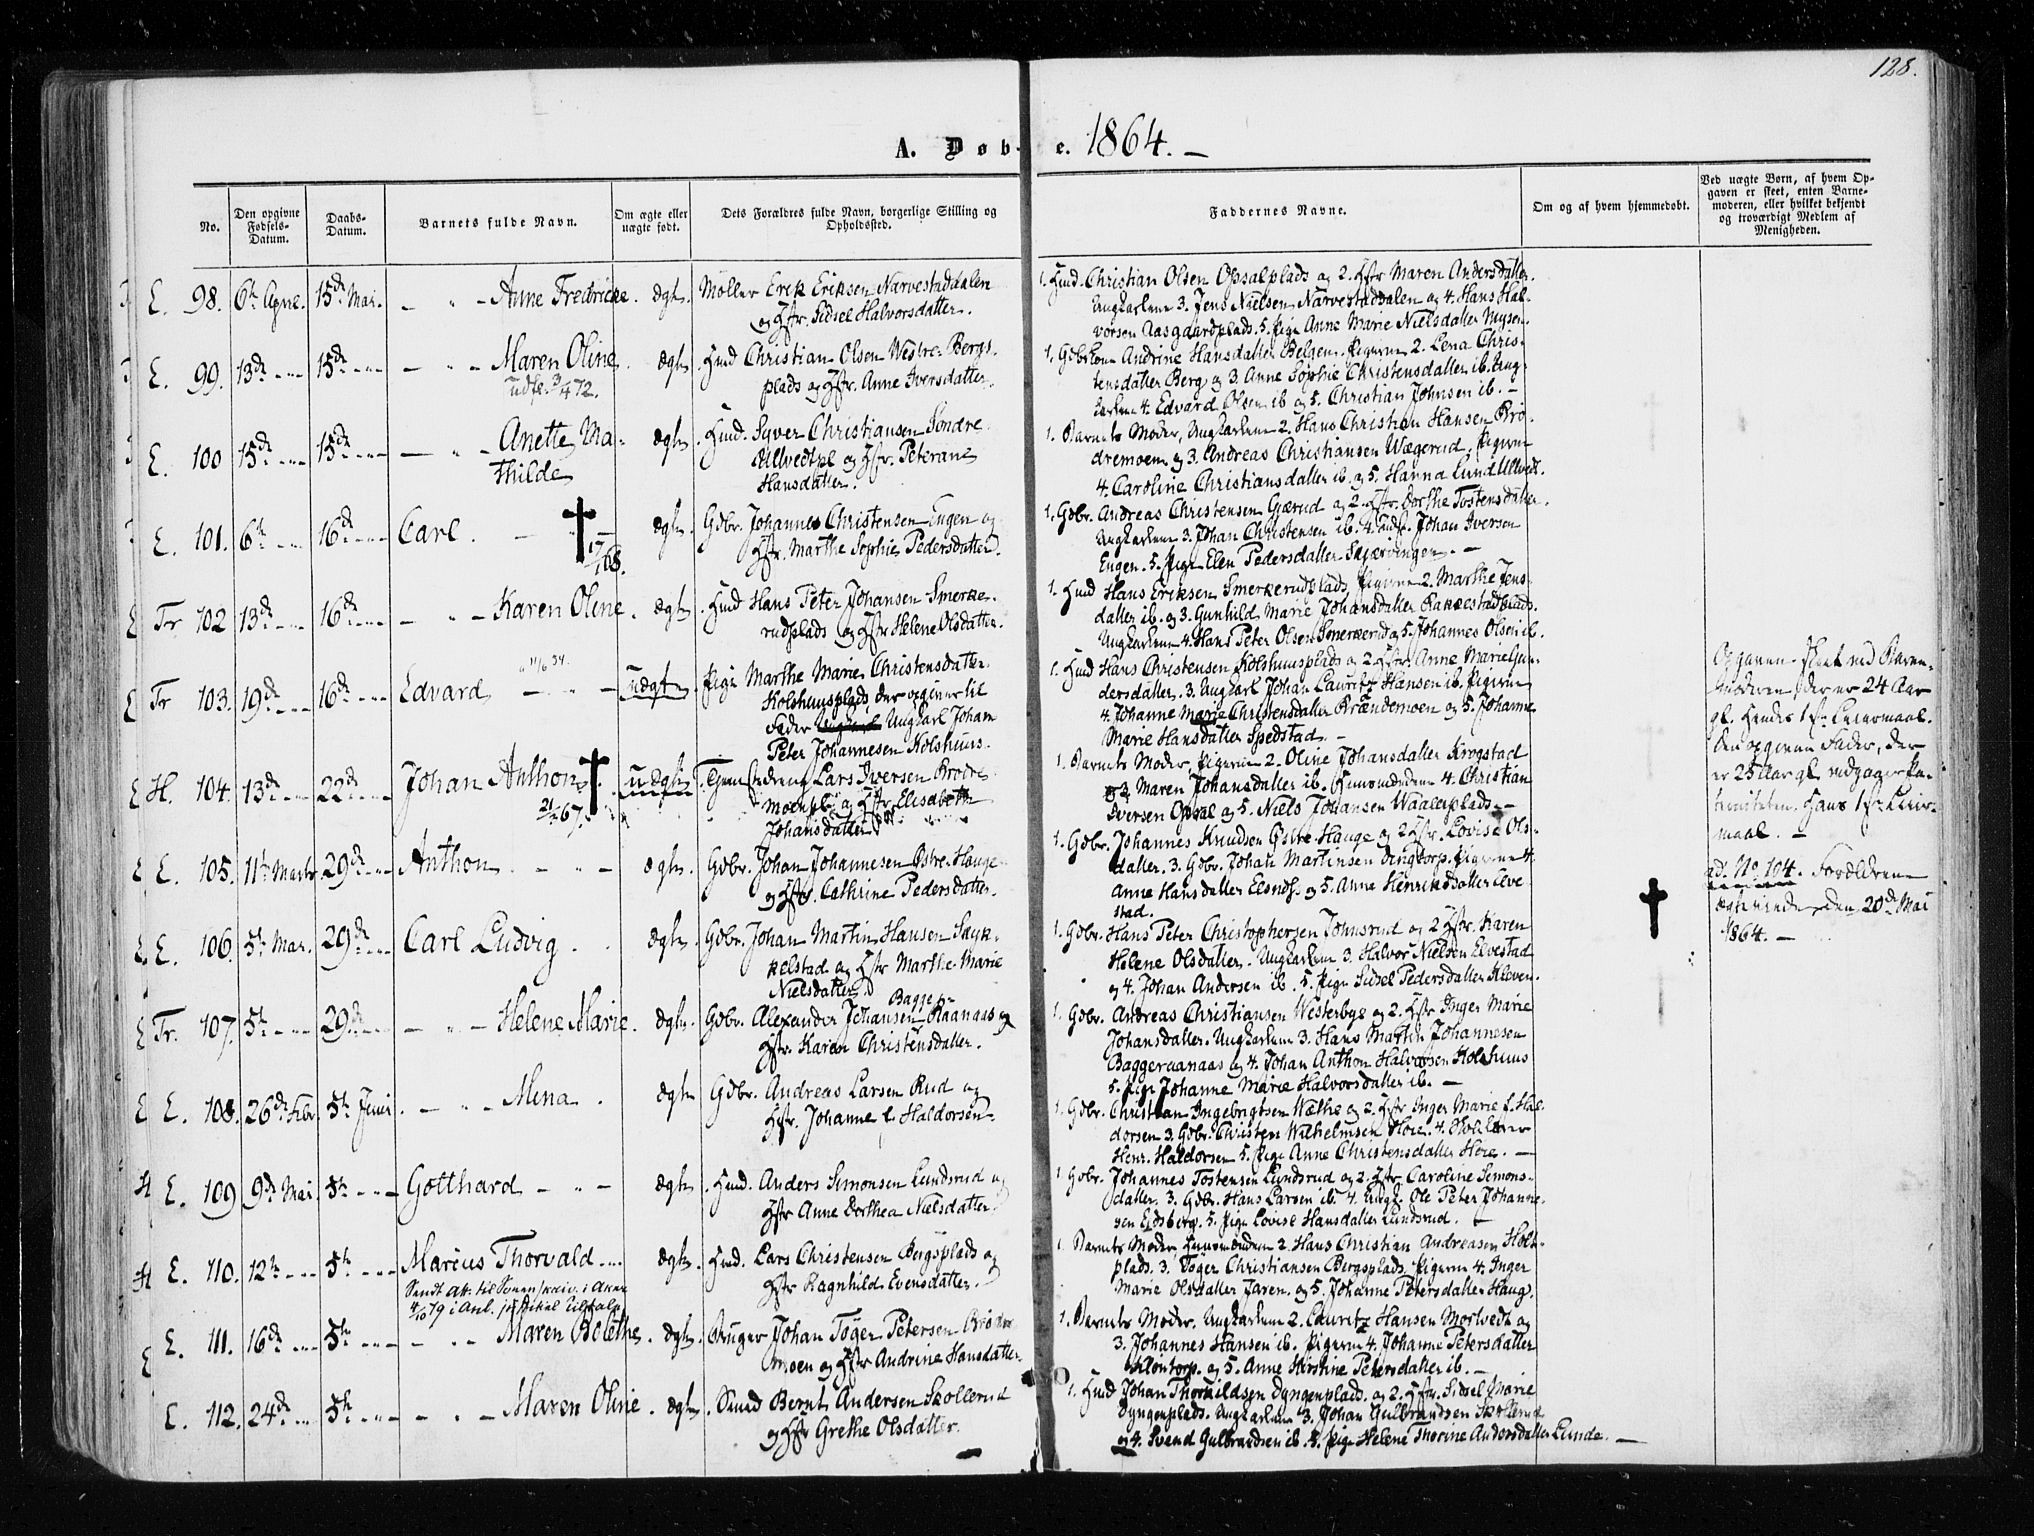 128.
A. Døb-
e. 1864. –
No.
Den opgivne Fødsels-Datum.
Daabs-Datum.
Barnets fulde Navn.
Om ægte eller uægte født.
Dets Forældres fulde Navn, borgerlige Stilling og Opholdssted.
Faddernes Navne.
Om og af hvem hjemmedøbt.
Ved uægte Børn, af hvem Opgaven er skeet, enten Barnemoderen, eller hvilket bekjendt og troværdigt Medlem af Menigheden.
E. 98. 6te 15de Mai. Anne Fredrikke. Ægte.
Møller Erik Eriksen Narvestaddalen
og Hstr. Sidsel Halvorsdatter.
1. Husd. Christian Olsen Opsalplads og 2. Hstr Maren Andersdatter.
Ungkarlene 3. Jens Nielsen Narvestaddalen og 4. Hans Hal-
vorsen Aasgaardplads. 5. Pige Anne Marie Nielsdatter Mysen.
E. 99. 13de 15de Maren Oline Ægte
udfl. 3/4 72.
Husd Christian Olsen Westre Bergs-
plads og Hstr. Anne Iversdatter.
1. Gdbr Andrine Hansdatter Belgen. Pigerne 2. Lena Chris-
tensdatter Berg og 3. Anne Sophie Christensdatter ib. Ung-
karlene 4. Edvard Olsen ib og 5. Christian Johnsen ib. –
E. 100 15de 15de Anette Ma-
thilde
Ægte
Husd. Syver Christiansen Søndre
Ullvedtpl og Hstr. Peterane
Hansdatter.
1. Barnets Moder, Ungkarlene 2. Hans Christian Hansen Brø-
dremoen og 3. Andreas Christiansen Wægerud. Pigerne
4. Caroline Christiansdatter ib og 5. Hanna Lund Ullvedt.
E. 101. 6te 16de Carl. Ægte
Gdbr. Johannes Christensen Engen og
Hstr. Marthe Sophie Pedersdatter.
1. Gdbr. Andreas Christensen Gjærud og 2. Hstr. Dorthe Tostensdatter
Ungkarlene 3. Johan Christensen ib. 4. Johan Iversen
Engen. 5. Pige Elen Pedersdatter Skjærvingen. –
Tr 102 13de 16de Karen Oline. Ægte
Husd Hans Peter Johansen Smerke-
rudplads og Hstr Helene Olsdatter.
1. Husd Hans Eriksen Smerkerudplads, Pigerne 2. Marthe Jens-
datter ib. og 3. Gunhild Marie Johansdatter Rakkestadplads.
Ungkarlene 4. Hans Peter Olsen Smerkerud og 5. Johannes Olsen ib.
Tr 103. 19de 16de Edvard Uægte
Pige Marthe Marie Christensdatter
Kolshuusplads, der opgiver til
Fader Ungkarl Johan
Peter Johannesen Kolshuus.
1. Husd Hans Christensen Kolshuusplads og 2. Hstr. Anne Marie Gun-
dersdatter. 3. Ungkarl Johan Lauritz Hansen ib. Pigerne
4. Johanne Marie Christensdatter Brændemoen og 5. Johanne
Marie Hansdatter Spedstad. –
Opgaven skeet ved Barne-
moderen, der er 24 Aar
gl. Hendes 1ste Leiermaal.
Den opgivne Fader, der
er 25 Aar gl. vedgaaer Pa-
terniteten. Hans 1ste Leier-
maal. –
H. 104. 13de 22de Johan Anthon. Uægte
21/2 67.
Lars Iversen Brødre-
moenpl. og Hstr. Elisabeth
Johansdatter.
1. Barnets Moder, Pigerne 2. Oline Johansdatter Krogstad
og 3. Maren Johansdatter ib. Huusmændene 4. Christian
Iversen Opsal og 5. Niels Johansen Waalerplads. –
ad. No 104. Forældrene
ægteviede den 20de Mai
1864. –
E. 105. 11te Marts 29de Anthon Ægte.
Gdbr. Johan Johannesen Østre Hauge
og Hstr. Cathrine Pedersdatter.
1. Gdbr. Johannes Knudsen Østre Hauge og 2 Hstr. Lovise Ols-
datter. 3. Gdbr. Johan Martinsen Dingtorp. Pigerne 4.
Anne Hansdatter og 5. Anna Henriksdatter Elve-
stad.
E. 106. 5te Mai. 29de Carl Ludvig. Ægte
Gdbr. Johan Martin Hansen Skyk-
kelstad og Hstr Marthe Marie
Nielsdatter.
1. Gdbr. Hans Peter Christophersen Tohnsrud og 2 Hstr. Karen
Helene Olsdatter. Ungkarlene 3. Halvor Nielsen Elvestad
og 4. Johan Andersen ib. 5. Pige Sidsel Pedersdatter Kleven.
Tr. 107. 5te 29de Helene Marie. Ægte.
Gdbr. Alexander Johansen Bagge-
Raanaas og
Hstr. Karen Christensdatter.
1. Gdbr. Andreas Christiansen Westerbye og 2. Hstr Inger Marie
Johansdatter. Ungkarlene 3. Hans Martin Johannesen
Baggeraanaas og 4. Johan Anthon Halvorsen Kolshuus
5. Pige Johanne Marie Halvorsdatter ib. –
E. 108. 26de Febr. 5te Juni Mina. Ægte
Gdbr. Andreas Larsen Rud og
Hstr. Johanne f. Haldorsen.
1. Gdbr. Christian Ingebrigtsen Wæthe og 2. Hstr Inger Marie f. Hal-
dorsen 3. Gdbr. Christen Wilhelmsen Hoie. 4.
Henr. Haldorsen 5. Pige Anne Christensdatter Hoie. –
E. 109 9de Mai. 5te Gotthard Ægte
Husd. Anders Simonsen Lundsrud og
Hstr Anne Dorthea Nielsdatter.
1 Gdbr. Johannes Tostensen Lundsrud og 2. Hstr Caroline Simons-
datter. 3. Gdbr. Hans Larsen ib. 4. Ole Peter Johanne-
sen Eidsberg. 5. Pige Lovise Hansdatter Lundsrud. –
E. 110. 12te 5te Marius Thorvald Ægte.
Husd. Lars Christensen Bergsplads og
Hstr Ragnhild Evensdatter.
1. Barnets Moder, Huusmændene 2. Hans Christian Andreasen Holt-
plads. 3. Tøger Christiansen Bergsplads. Pigerne 4. Inger
Marie Olsdatter Jaren, og 5. Johanne Petersdatter Haug.
E. 111. 16de 5te Maren Bolethe. Ægte.
Bruger Johan Tøger Petersen Brødre-
moen og Hstr Andrine Hansdatter.
1. Barnets Moder. Ungkarlene 2. Lauritz Hansen Mortvedt og
3. Johannes Hansen ib. Pigerne 4. Johanne Petersdatter
Sløntorp. og 5. Anne Kirstine Petersdatter ib. –
E. 112. 24de 5te Maren Oline. Ægte.
Smed Bernt Andersen Skollerud
og Hstr Grethe Olsdatter.
1. Husd Johan Thorkildsen Dyngenplads. og 2. Hstr. Sidsel Marie
Dyngenplads. Ungkarlene 3. Johan Gulbrandsen Skollerud
og 4. Svend Gulbrandsen ib. 5. Pige Helene Thorine Andersdatter Lunde. –